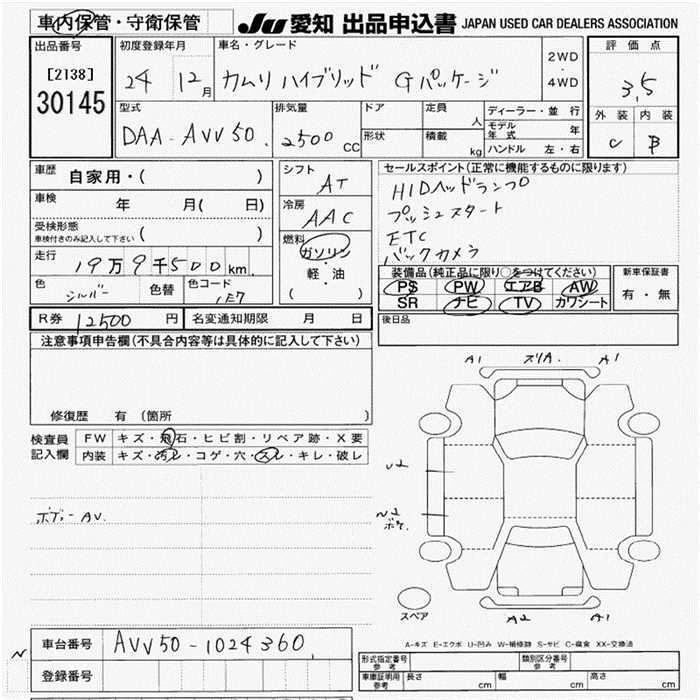 車内保管・守衛保管
JU 愛知 出品申込書 JAPAN USED CAR DEALERS ASSOCIATION
出品番号
[2138]
30145
初度登録年月
24 12月
車名・グレード
カムリ ハイブリッド Gパッケージ
2WD
・
4WD
評価点
3,5
外装 内装
C B
型式
DAA-AVV50.
排気量
2500 CC
ドア
形状
定員
人
積載
kg
ディーラー・並行
モデル年式 年
ハンドル 左・右
車歴 自家用・( )
車検 年 月( 日)
受検形態
車検付きのみ記入して下さい ( )
走行 19万9千500km
色 シルバー 色替 色コード 1F7
シフト
AT
冷房
AAC
燃料
ガソリン
軽・油
( )
セールスポイント(正常に機能するものに限ります)
HIDヘッドランプ
プッシュスタート
ETC
バックカメラ
装備品(純正品に限り○をつけてください)
PS PW エアB AW
SR ナビ TV カワシート
新車保証書
有・無
R券 12500円 名変通知期限 月 日
後日品
注意事項申告欄(不具合内容等は具体的に記入して下さい)
修復歴 有(箇所 )
検査員記入欄
FW キズ・飛石・ヒビ割・リペア跡・X要
内装 キズ・汚レ・コゲ・穴・スレ・キレ・破レ
ボデーAV.
A1 スリA. A1
U2
スペア
A2 A1
A-キズ E-エクボ U-凹み W-補修跡 S-サビ C-腐食 XX-交換済
N
車台番号 AVV50-1024360.
登録番号
形式指定番号 参考
類別区分番号 参考
車庫証明用 参考 長さ cm 幅 cm 高さ cm